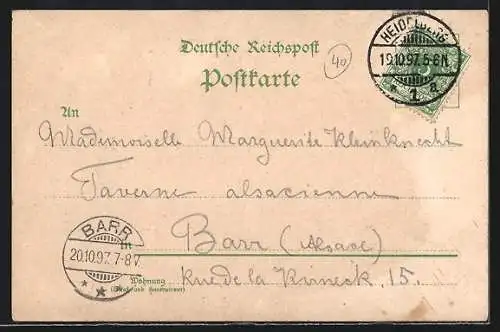 Deutsche Reichspost
Postkarte
40
HEIDELBERG
19.10.97. 5-6N.
* 1 a.
An
Mademoiselle Marguerite Kleinknecht
Taverne alsacienne
BARR
20.10.97. 7-8V.
in Barr (Alsace)
Wohnung
(Straße und Hausnummer)
Rue de la Kirneck, 15.